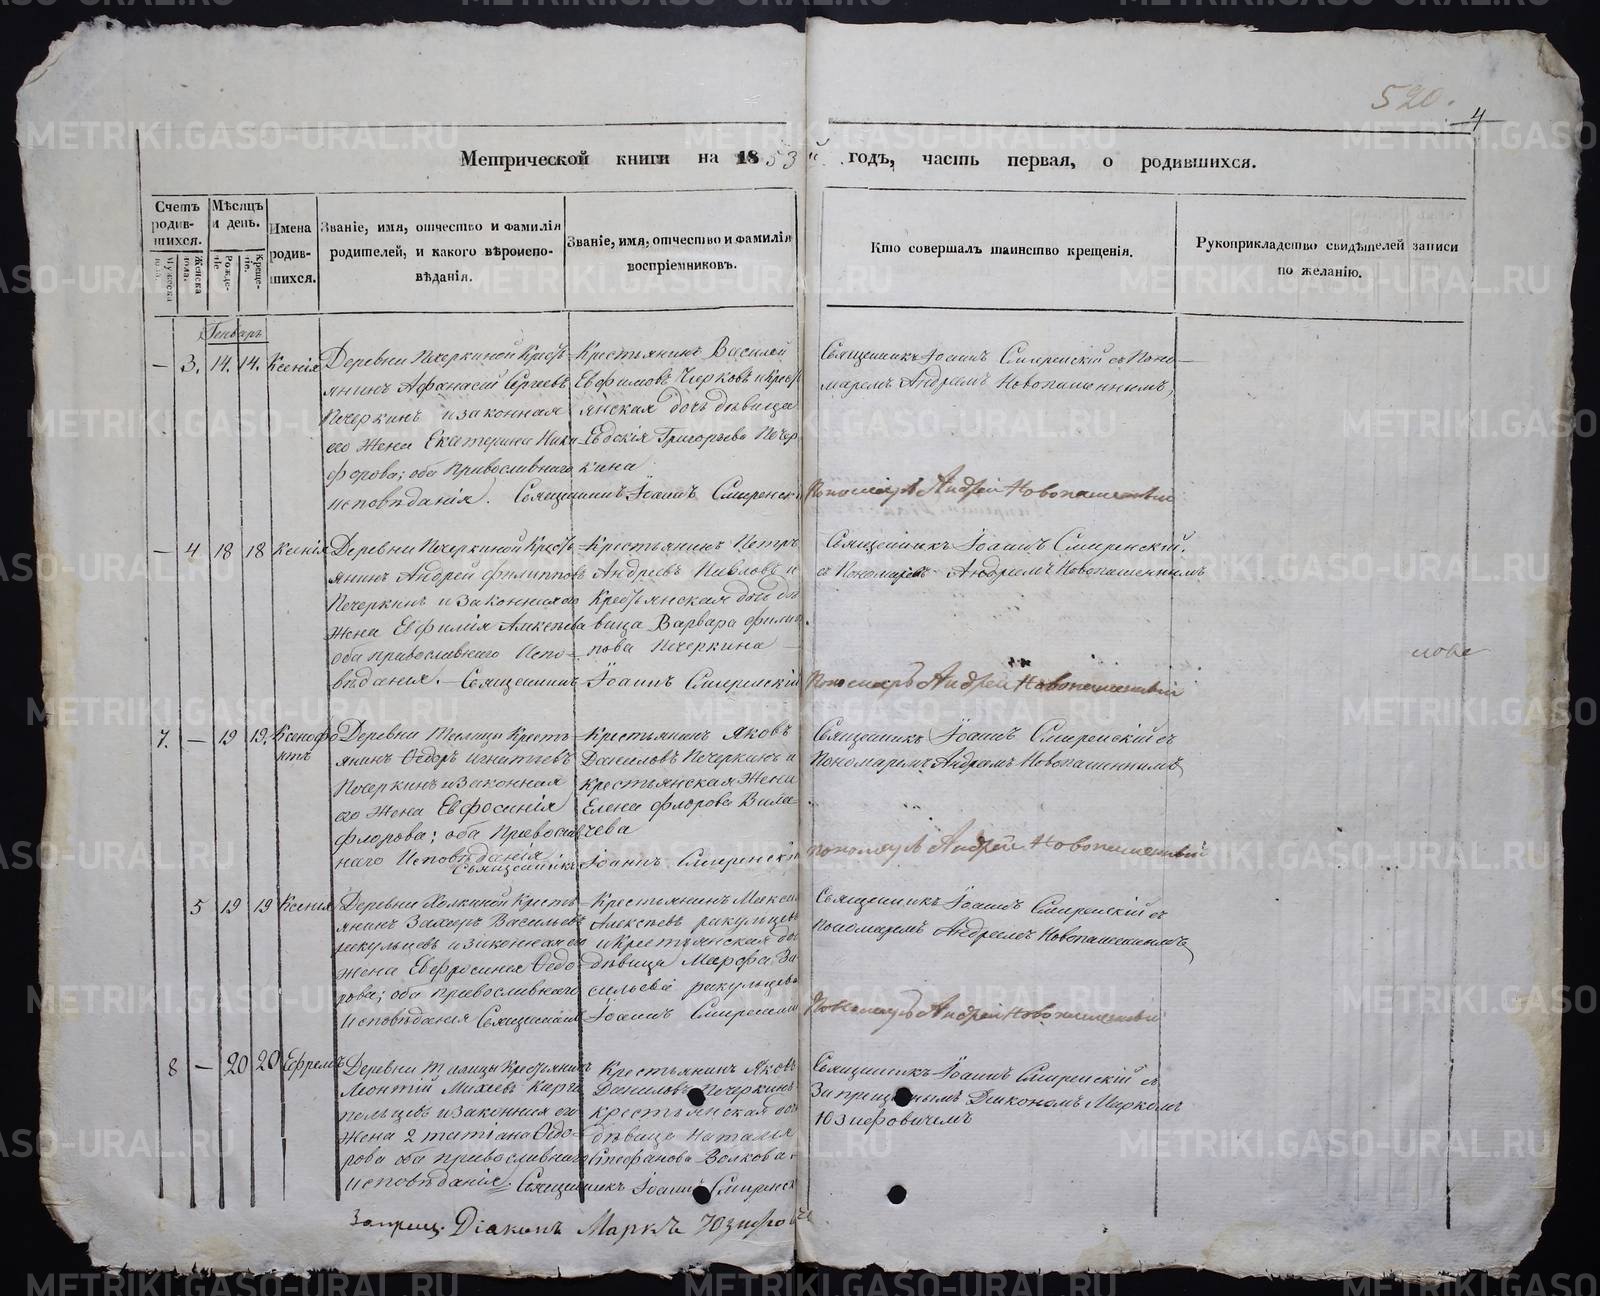 520.
4
Метрической книги на 1853й годъ, часть первая, о родившихся.
Счетъ родив-
шихся.
Мужеска
пола.
Женска
пола.
Мѣсяцъ
и день.
Рожде-
ніе.
Креще-
ніе.
Имена
родив-
шихся.
Званіе, имя, отчество и фамилія
родителей, и какого вѣроиспо-
вѣданія.
Званіе, имя, отчество и фамилія
воспріемниковъ.
Кто совершалъ таинство крещенія.
Рукоприкладство свидѣтелей записи
по желанію.
Генварь
— 3. 14. 14. Ксенія
Деревни Печеркиной Кресть-
янинъ Афанасій Сергеевъ
Печеркинъ и законная
его жена Екатерина Ники-
форова; оба Православнаго
исповѣданія.
Крестьянинъ Василей
Евфимовъ Черковъ и Кресть
янская дочь дѣвица
Евдокія Григорьева Печер
кина
Священникъ Іоаннъ Смиренскій съ Поно-
маремъ Андреемъ Новопашеннымъ,
Священникъ Іоаннъ Смиренскі
Пономарь Андрей Новопашенный
— 4 18 18 Ксенія
Деревни Печеркиной Кресть-
янинъ Андрей Филипповъ
Печеркинъ и законная его
жена Евфимія Алексѣева
оба православнаго Испо-
вѣданія.
Крестьянинъ Петръ
Андреевъ Павловъ и
Крестьянская дочь дѣ
вица Варвара Филип
пова Печеркина
Священникъ Іоаннъ Смиренскій.
съ Пономаремъ Андреемъ Новопашеннымъ
Священникъ Іоаннъ Смиренскій
Пономарь Андрей Новопашенный
7. — 19 19. Ксенофо
нтъ
Деревни Талицы Кресть-
янинъ Ѳедоръ Игнатьевъ
Печеркинъ и законная
его жена Евфросинія
Флорова; оба Православ
наго Исповѣданія
Крестьянинъ Яковъ
Даниловъ Печеркинъ и
Крестьянская жена
Елена Флорова
Священникъ Іоаннъ Смиренскій съ
Пономаремъ Андреемъ Новопашеннымъ
Священникъ Іоаннъ Смиренскі
Пономарь Андрей Новопашенный
5 19 19 Ксенія
Деревни Холкиной Кресть
янинъ Захаръ Васильевъ
ракульцевъ и законная его
жена Евфросинія Ѳедо-
рова; оба православнаго
Исповѣданія
Крестьянинъ
Алексѣевъ ракульцевъ
и Крестьянская до
дѣвица Марфа Ва
сильева ракульцева
Священникъ Іоаннъ Смиренскій съ
Пономаремъ Андреемъ Новопашеннымъ
Священникъ Іоаннъ Смиренскі
Пономарь Андрей Новопашенный
8 — 20 20 Ефремъ
Деревни Талицы Крестьянинъ
Леонтій Михеевъ Карга
польцевъ и законная его
жена 2 татіана Ѳедо-
рова оба православнаго
исповѣданія.
Крестьянинъ Яковъ
Даниловъ Печеркинъ
крестьянская до
дѣвица Наталья
Стефанова Волкова.
Священникъ Іоаннъ Смиренскій съ
Запрещеннымъ Діакономъ Маркомъ
Юзефовичемъ
Священникъ Іоаннъ Смиренск
Запрещ. Діаконъ Маркъ Юзефовичь
METRIKI.GASO-URAL.RU